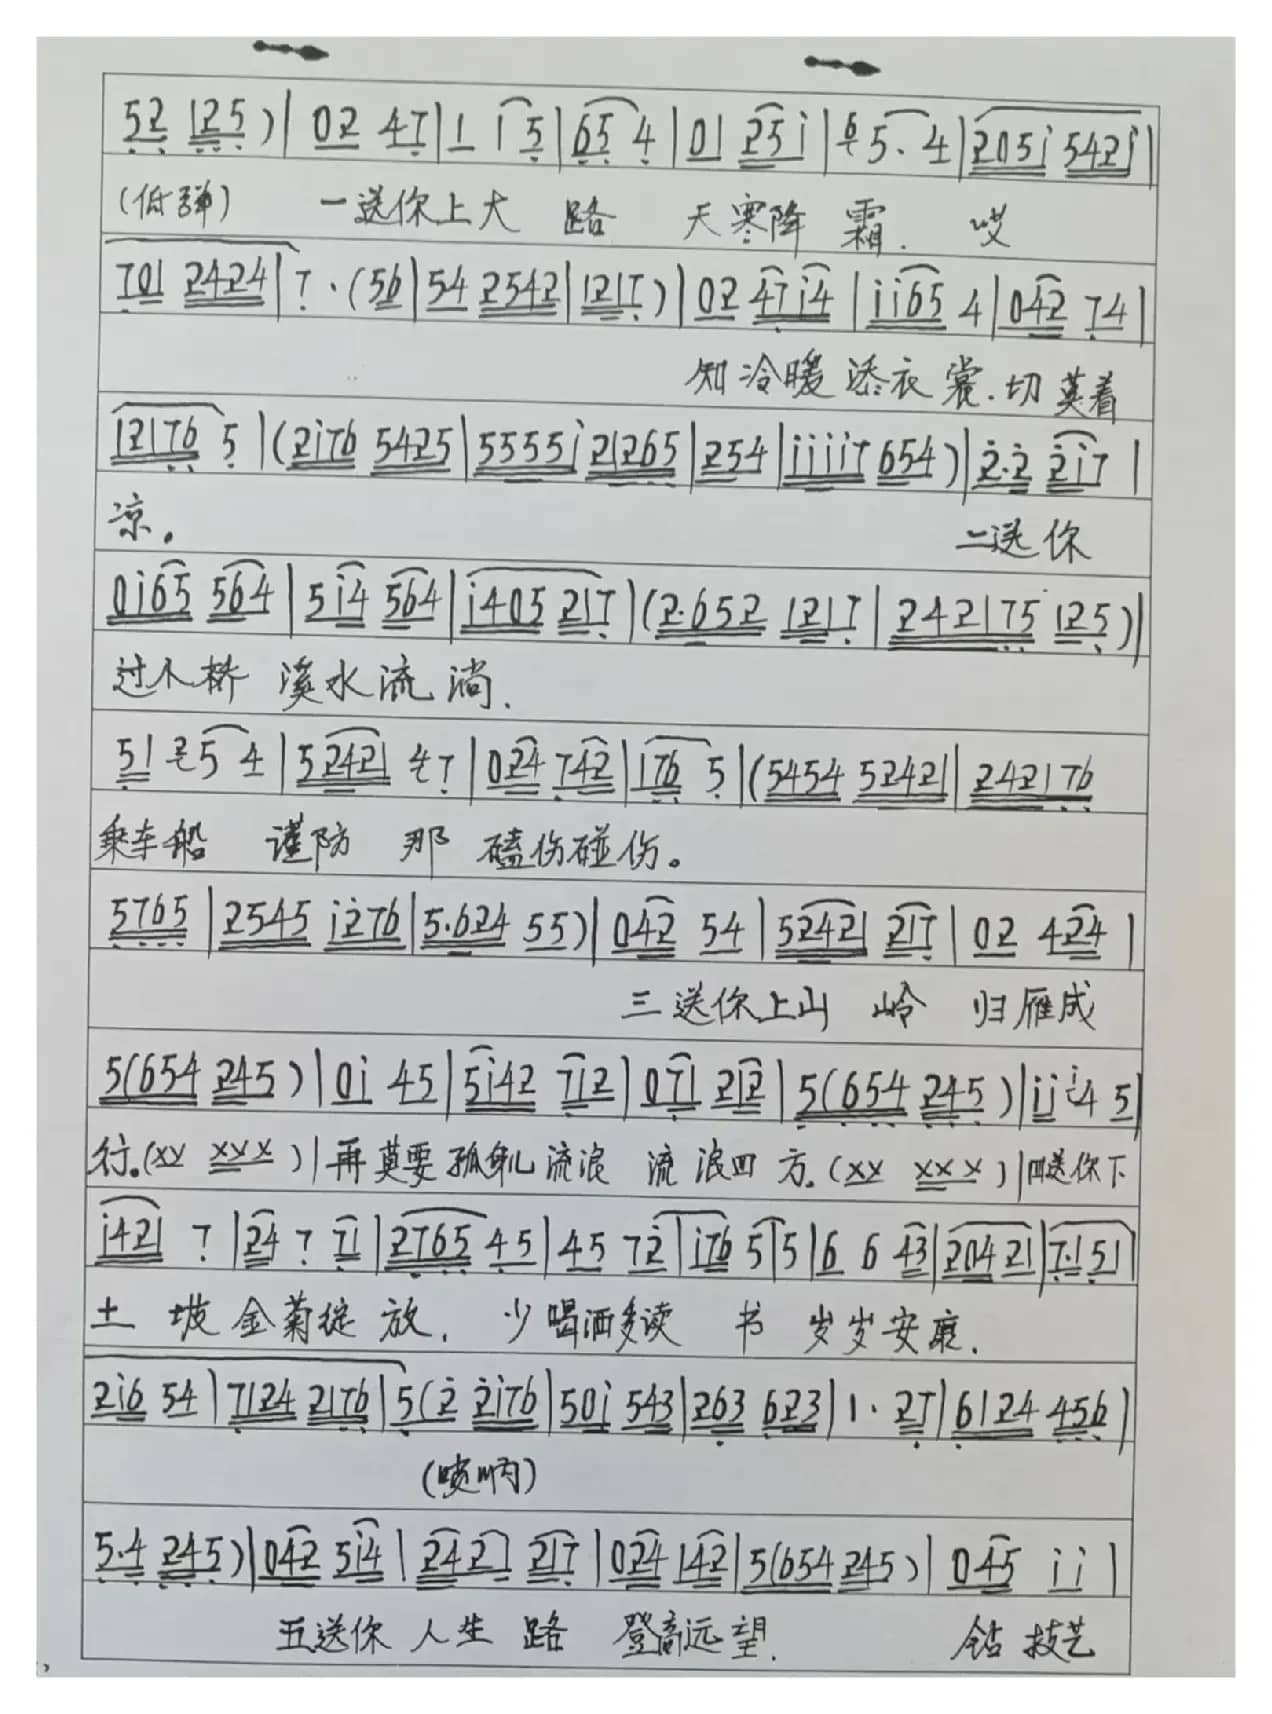 52 125)|02 47|1 i5|65 4|01 25i|65. 4|205i 542i|
(低弹) 一送你上大 路 天寒降 霜. 哎
701 2424|7.(56|54 2542|1217)|02 47i4|ii65 4|042 74|
知冷暖 添衣裳.切莫着
12176 5|(2i76 5425|5555i 21265|254|iiii7 654)|2.2 2i7|
凉。 二送你
0i65 564|5i4 564|i405 217|(2.652 1217|242175 125)|
过小桥 溪水流淌.
51 25 4|52421 47|024 742|176 5|(5454 52421|242176
乘车船 谨防 那 磕伤碰伤。
5765|2545 i276|5.624 55)|042 54|52421 217|02 424|
三送你上山 岭 归雁成
5(654 245)|0i 45|5i42 712|071 212|5(654 245)|iii4 5|
行.(xx xxx)|再莫要孤身儿流浪 流浪四方.(xx xxx)|四送你下
i421 7|24 7 71|2765 45|45 72|i76 5|5|6 6 43|20421|7.151|
土 坡 金菊绽 放. 少喝酒多读 书 岁岁安康.
2i6 54|7124 2176|5(2 2i76|50i 543|263 623|1. 27|6124 456)
(唢呐)
5.4 245)|042 5i4|2427 217|024 142|5(654 245)|045 ii|
五送你 人生 路 登高远望. 钻 技艺